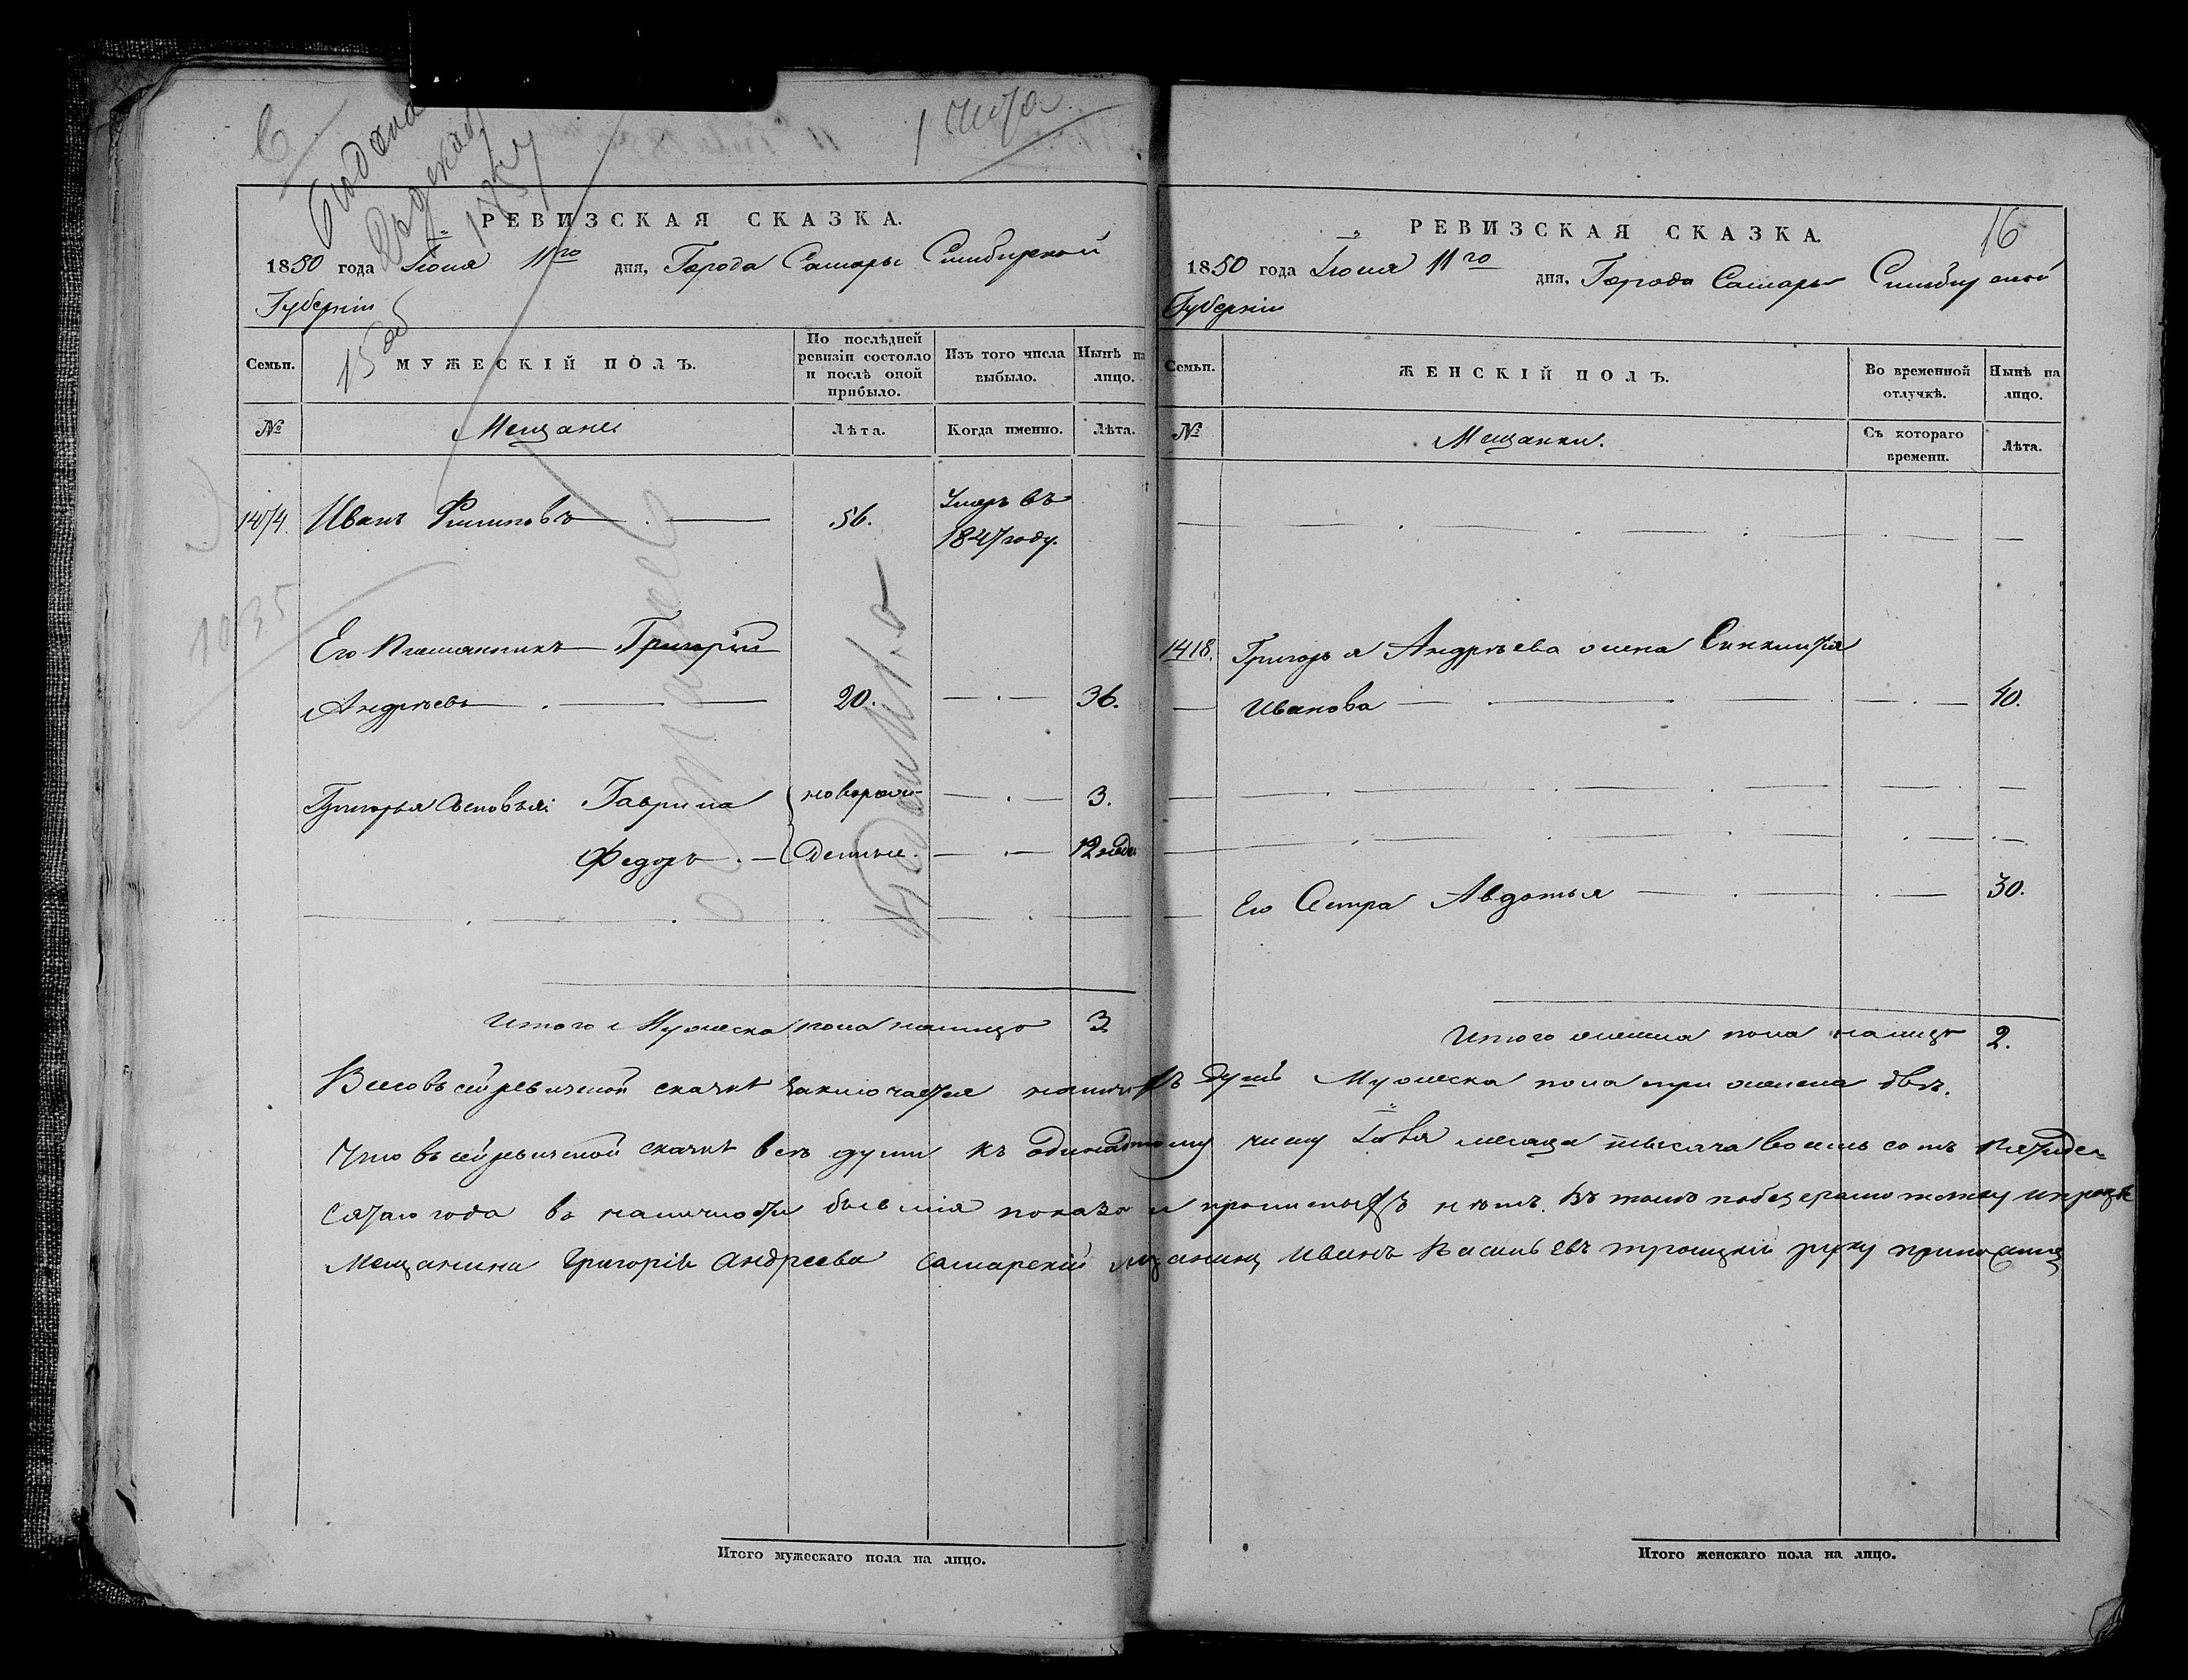 1 июля
РЕВИЗСКАЯ СКАЗКА.
1850 года Іюня 11го дня, Города Самары Симбирской
Губерніи
Семьи.
МУЖЕСКІЙ ПОЛЪ.
По послѣдней
ревизіи состояло
и послѣ оной
прибыло.
Изъ того числа
выбыло.
Нынѣ на
лицо.
№
Мещане
Лѣта.
Когда именно.
Лѣта.
Иванъ Филиповъ
56.
Умеръ въ
1847 году.
1035
Его Племянникъ Григорій
Андрѣевъ 20. 36.
Григорья Сыновья: Гаврила новорож- 3.
Федоръ денные. 12 неде
Итого Мужеска пола налицо 3
Итого мужескаго пола на лицо.
16
РЕВИЗСКАЯ СКАЗКА.
1850 года Іюня 11го дня, Города Самары Симбирской
Губерніи
Семьи.
ЖЕНСКІЙ ПОЛЪ.
Во временной
отлучкѣ.
Нынѣ на
лицо.
№
Мещанки.
Съ котораго
времени.
Лѣта.
1418. Григорья Андрѣева жена
Иванова 40.
Его Сестра Авдотья 30.
Итого женска пола налицо 2.
Всего въ сей ревизской сказкѣ заключается душъ Мужеска пола три женска двѣ.
Что въ сей ревизской сказкѣ всѣ души къ одинадтому числу месяца тысяча восемь сотъ пятиде-
сятаго года въ наличности бывшія показа и прописныхъ нѣтъ. Въ томъ
Мещанина Григорія Андреева Самарскій Иванъ Васильевъ Троицкій руку
Итого женскаго пола на лицо.